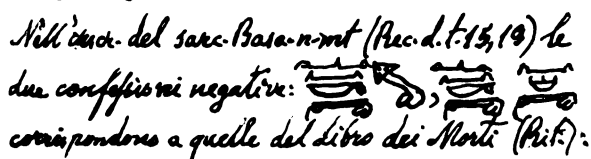 Nell'iscr. del sarc. Basa-n-mt (Rec. d. t. 15, 18) le
due confessioni negative: a),
corrispondono a quelle del Libro dei Morti (Rit.):